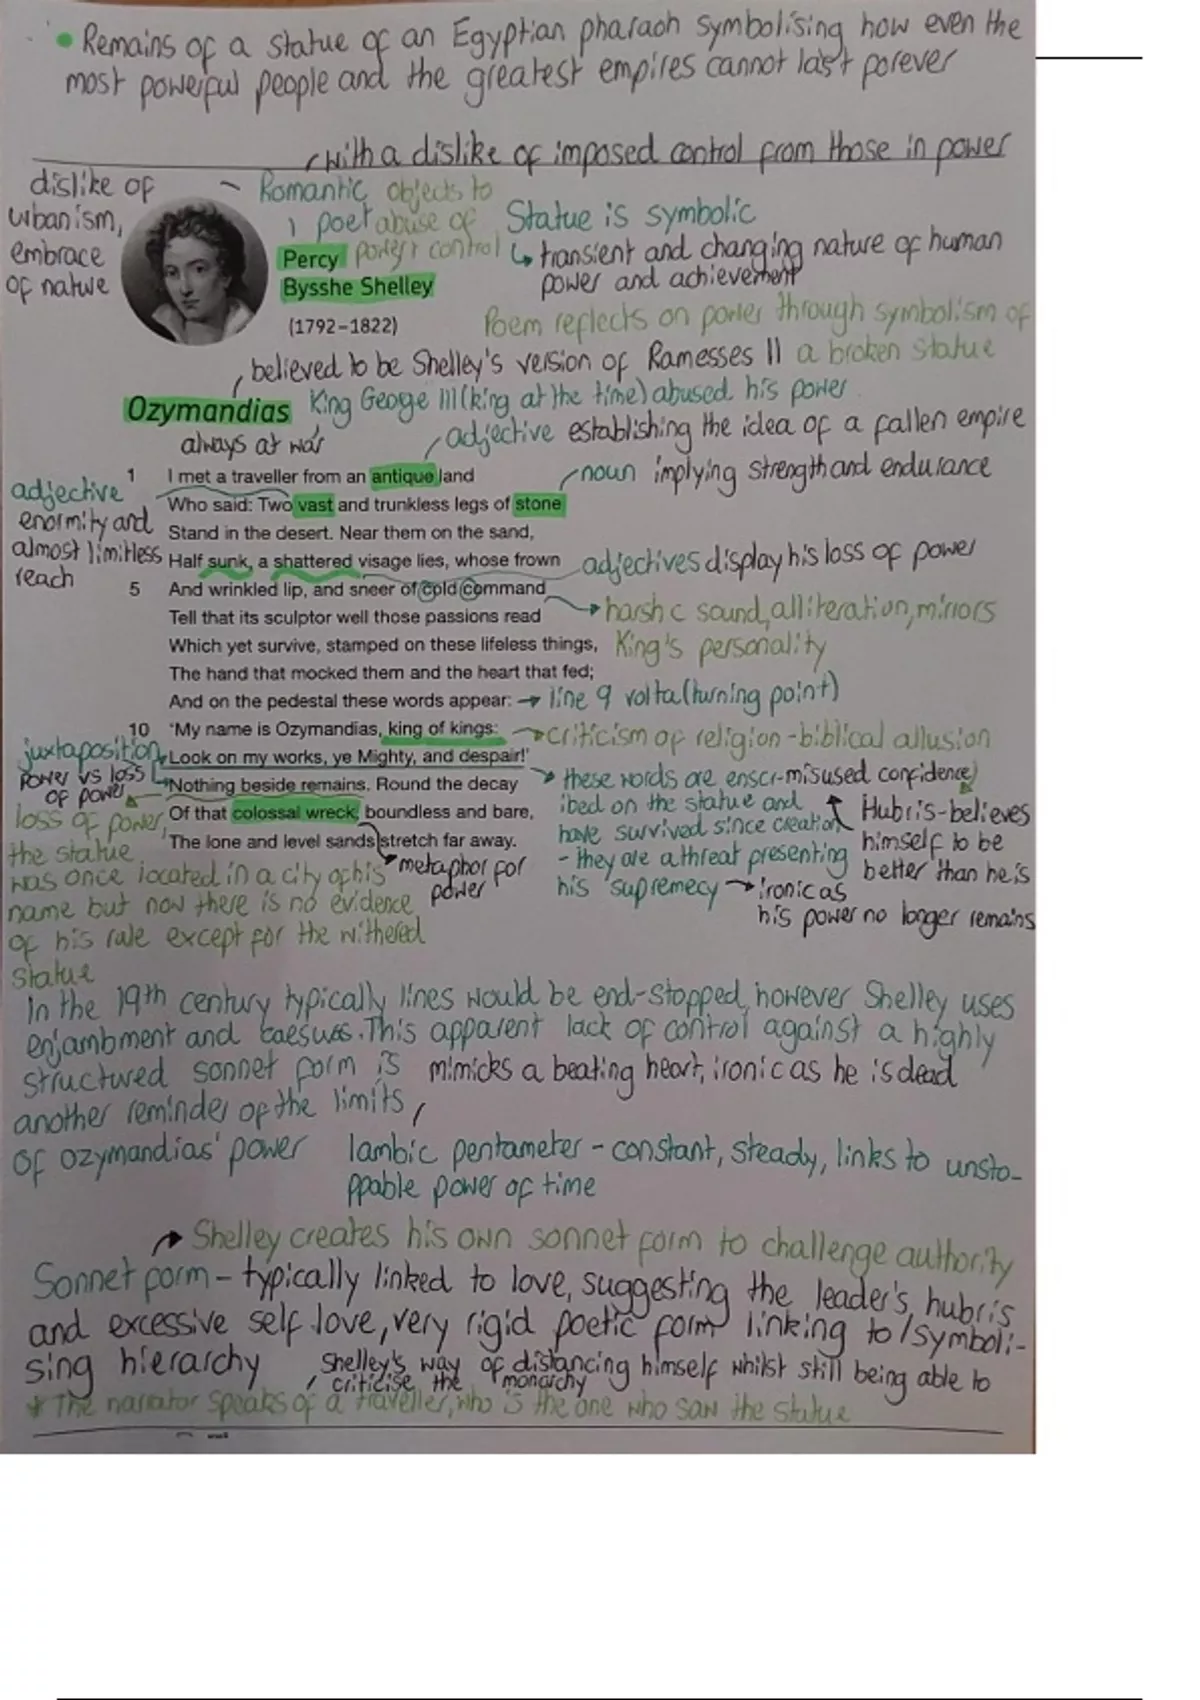 • Remains of a statue of an Egyptian pharaoh symbolising how even the
most powerful people and the greatest empires cannot last forever
with a dislike of imposed control from those in power
dislike of
urbanism,
embrace
of nature
Romantic objects to
poet abuse of
Percy power + control
Bysshe Shelley
(1792–1822)
Statue is symbolic
↳ transient and changing nature of human
power and achievement
Poem reflects on power through symbolism of
a broken statue
believed to be Shelley's version of Ramesses II
Ozymandias
King George III (king at the time) abused his power
always at war
adjective establishing the idea of a fallen empire
noun implying strength and endurance
adjective
enormity and
almost limitless
reach
1 I met a traveller from an antique land
Who said: Two vast and trunkless legs of stone
Stand in the desert. Near them on the sand,
Half sunk, a shattered visage lies, whose frown
adjectives display his loss of power
5 And wrinkled lip, and sneer of cold command
→ harsh c sound, alliteration, mirrors
King's personality
Tell that its sculptor well those passions read
Which yet survive, stamped on these lifeless things,
The hand that mocked them and the heart that fed;
And on the pedestal these words appear: → line 9 volta (turning point)
10 'My name is Ozymandias, king of kings:
→ criticism of religion - biblical allusion
Look on my works, ye Mighty, and despair!'
Nothing beside remains. Round the decay
Of that colossal wreck, boundless and bare,
The lone and level sands stretch far away.
juxtaposition
power vs loss
of power
loss of power,
the statue
was once located in a city of his
name but now there is no evidence
of his rule except for the withered
statue
metaphor for
power
these words are enscr-
ibed on the statue and
have survived since creation
- they are a threat presenting
his supremecy → ironic as
his power no longer remains
misused confidence
Hubris-believes
himself to be
better than he is
In the 19th century typically lines would be end-stopped, however Shelley uses
enjambment and caesuras. This apparent lack of control against a highly
structured sonnet form is
another reminder of the limits
of ozymandias' power
mimicks a beating heart, ironic as he is dead
Iambic pentameter - constant, steady, links to unsto-
ppable power of time
Shelley creates his own sonnet form to challenge authority
Sonnet form - typically linked to love, suggesting the leader's, hubris
and excessive self love, very rigid poetic form linking to/symboli-
sing hierarchy
Shelley's way of distancing himself whilst still being able to
criticise the monarchy
* The narrator speaks of a traveller, who is the one who saw the statue